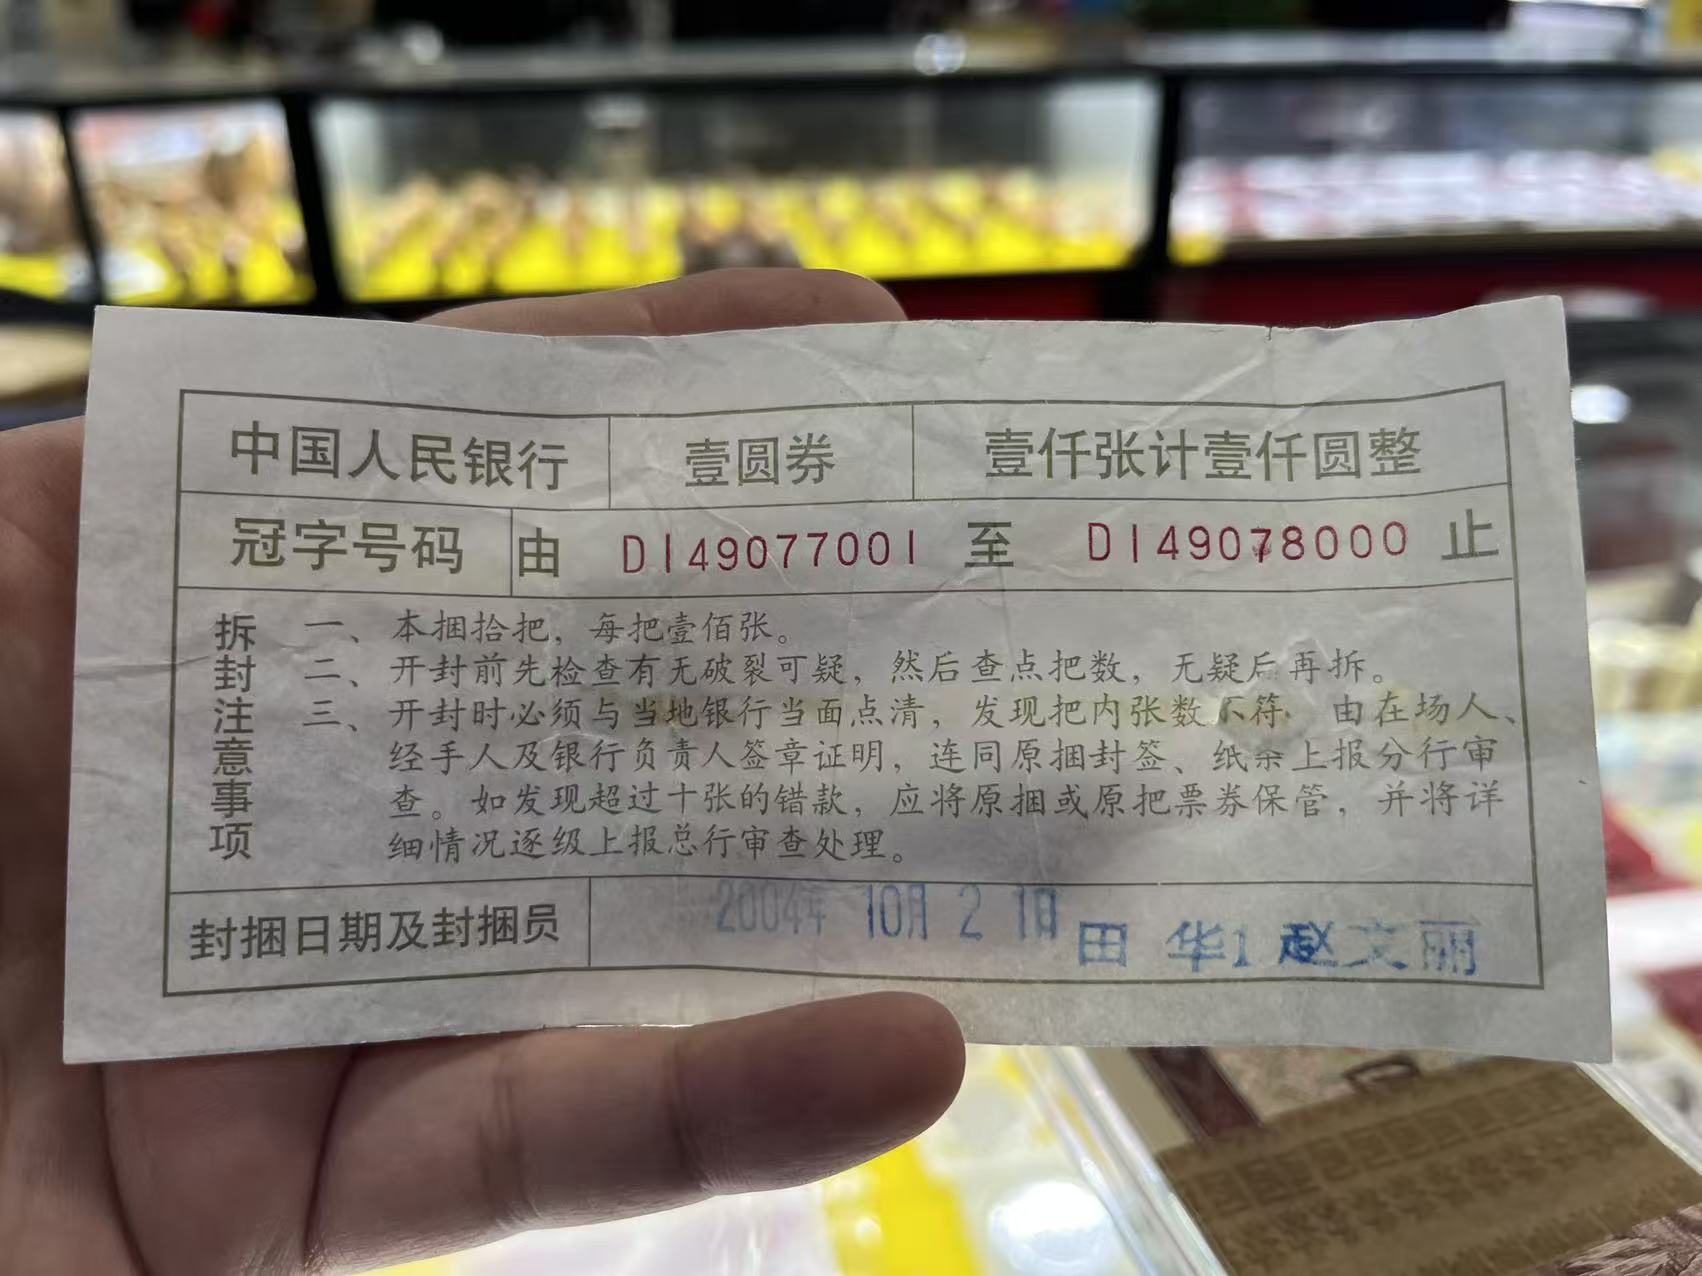 中国人民银行 壹圆券 壹仟张计壹仟圆整
冠字号码 由 DI49077001 至 DI49078000 止
拆封注意事项
一、本捆拾把，每把壹佰张。
二、开封前先检查有无破裂可疑，然后查点把数，无疑后再拆。
三、开封时必须与当地银行当面点清，发现把内张数不符，由在场人、
经手人及银行负责人签章证明，连同原捆封签、纸条上报分行审
查。如发现超过十张的错款，应将原捆或原把票券保管，并将详
细情况逐级上报总行审查处理。
封捆日期及封捆员 2004年 10月 21日 田 华1 赵文丽